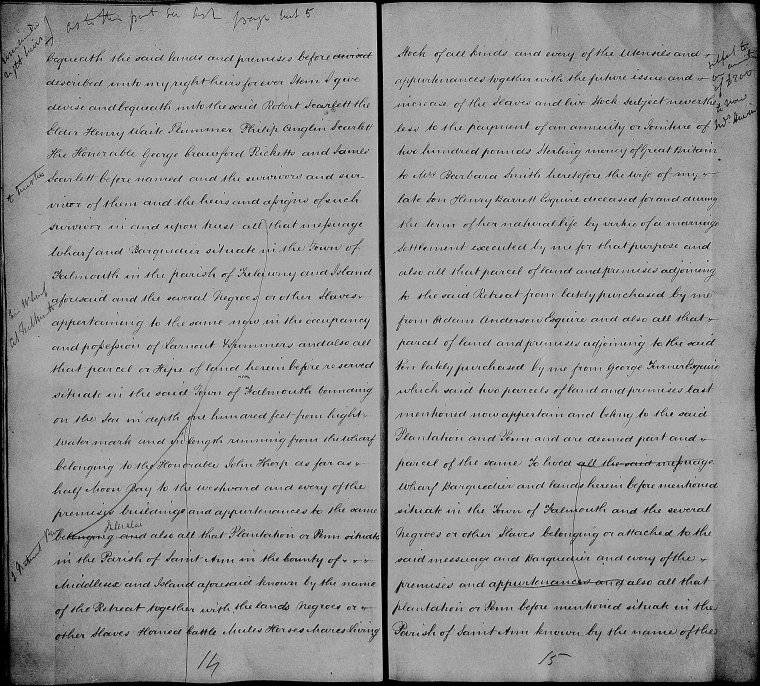 as to this part see
remainder
right heirs
bequeath the said lands and premises before devised
described unto my right heirs for ever Item I give
devise and bequeath unto the said Robert Scarlett the
Elder Henry Waite Plummer Philip Anglin Scarlett
the Honorable George Crawford Ricketts and James
Scarlett before named and the survivors and sur-
vivor of them and the heirs and assigns of such
survivor in and upon trust all that messuage
Wharf and Barquedier situate in the Town of
Falmouth in the parish of Trelawny and Island
aforesaid and the several Negroes or other Slaves
appertaining to the same now in the occupancy
and possession of Larnout & Plummers and also all
that parcel or Slipe of land herein before reserved
situate in the said Town of Falmouth bounding
on the Sea in depth one hundred feet from hight
Water mark and in length running from the Wharf
belonging to the Honorable John Tharp as far as
half Moon Bay to the westward and every of the
premises buildings and appurtenances to the same
belonging and also all that Plantation or Penn situate
in the Parish of Saint Ann in the County of
Middlesex and Island aforesaid known by the name
of the Retreat together with the lands Negroes or
other Slaves Horned Cattle Mules Horses Mares living
to trustees
14
Stock of all kinds and every of the Utensils and
appurtenances together with the future issue and
increase of the Slaves and live Stock subject neverthe
less to the payment of an annuity or Jointure of
two hundred pounds Sterling money of Great Britain
to Mrs Barbara Smith heretofore the wife of my
late Son Henry Barrett Esquire deceased for and during
the term of her natural life by virtue of a marriage
Settlement executed by me for that purpose and
also all that parcel of land and premises adjoining
to the said Retreat Penn lately purchased by me
from Adam Anderson Esquire and also all that
parcel of land and premises adjoining to the said
Penn lately purchased by me from George Turner Esquire
which said two parcels of land and premises last
mentioned now appertain and belong to the said
Plantation and Penn and are deemed part and
parcel of the same To hold all the said messuage
Wharf Barquedier and lands herein before mentioned
situate in the Town of Falmouth and the several
Negroes or other Slaves belonging or attached to the
said messuage and Barquedier and every of the
premises and appurtenances and also all that
plantation or Penn before mentioned situate in the
Parish of Saint Ann known by the name of the
subject to
annuity
of £200
15